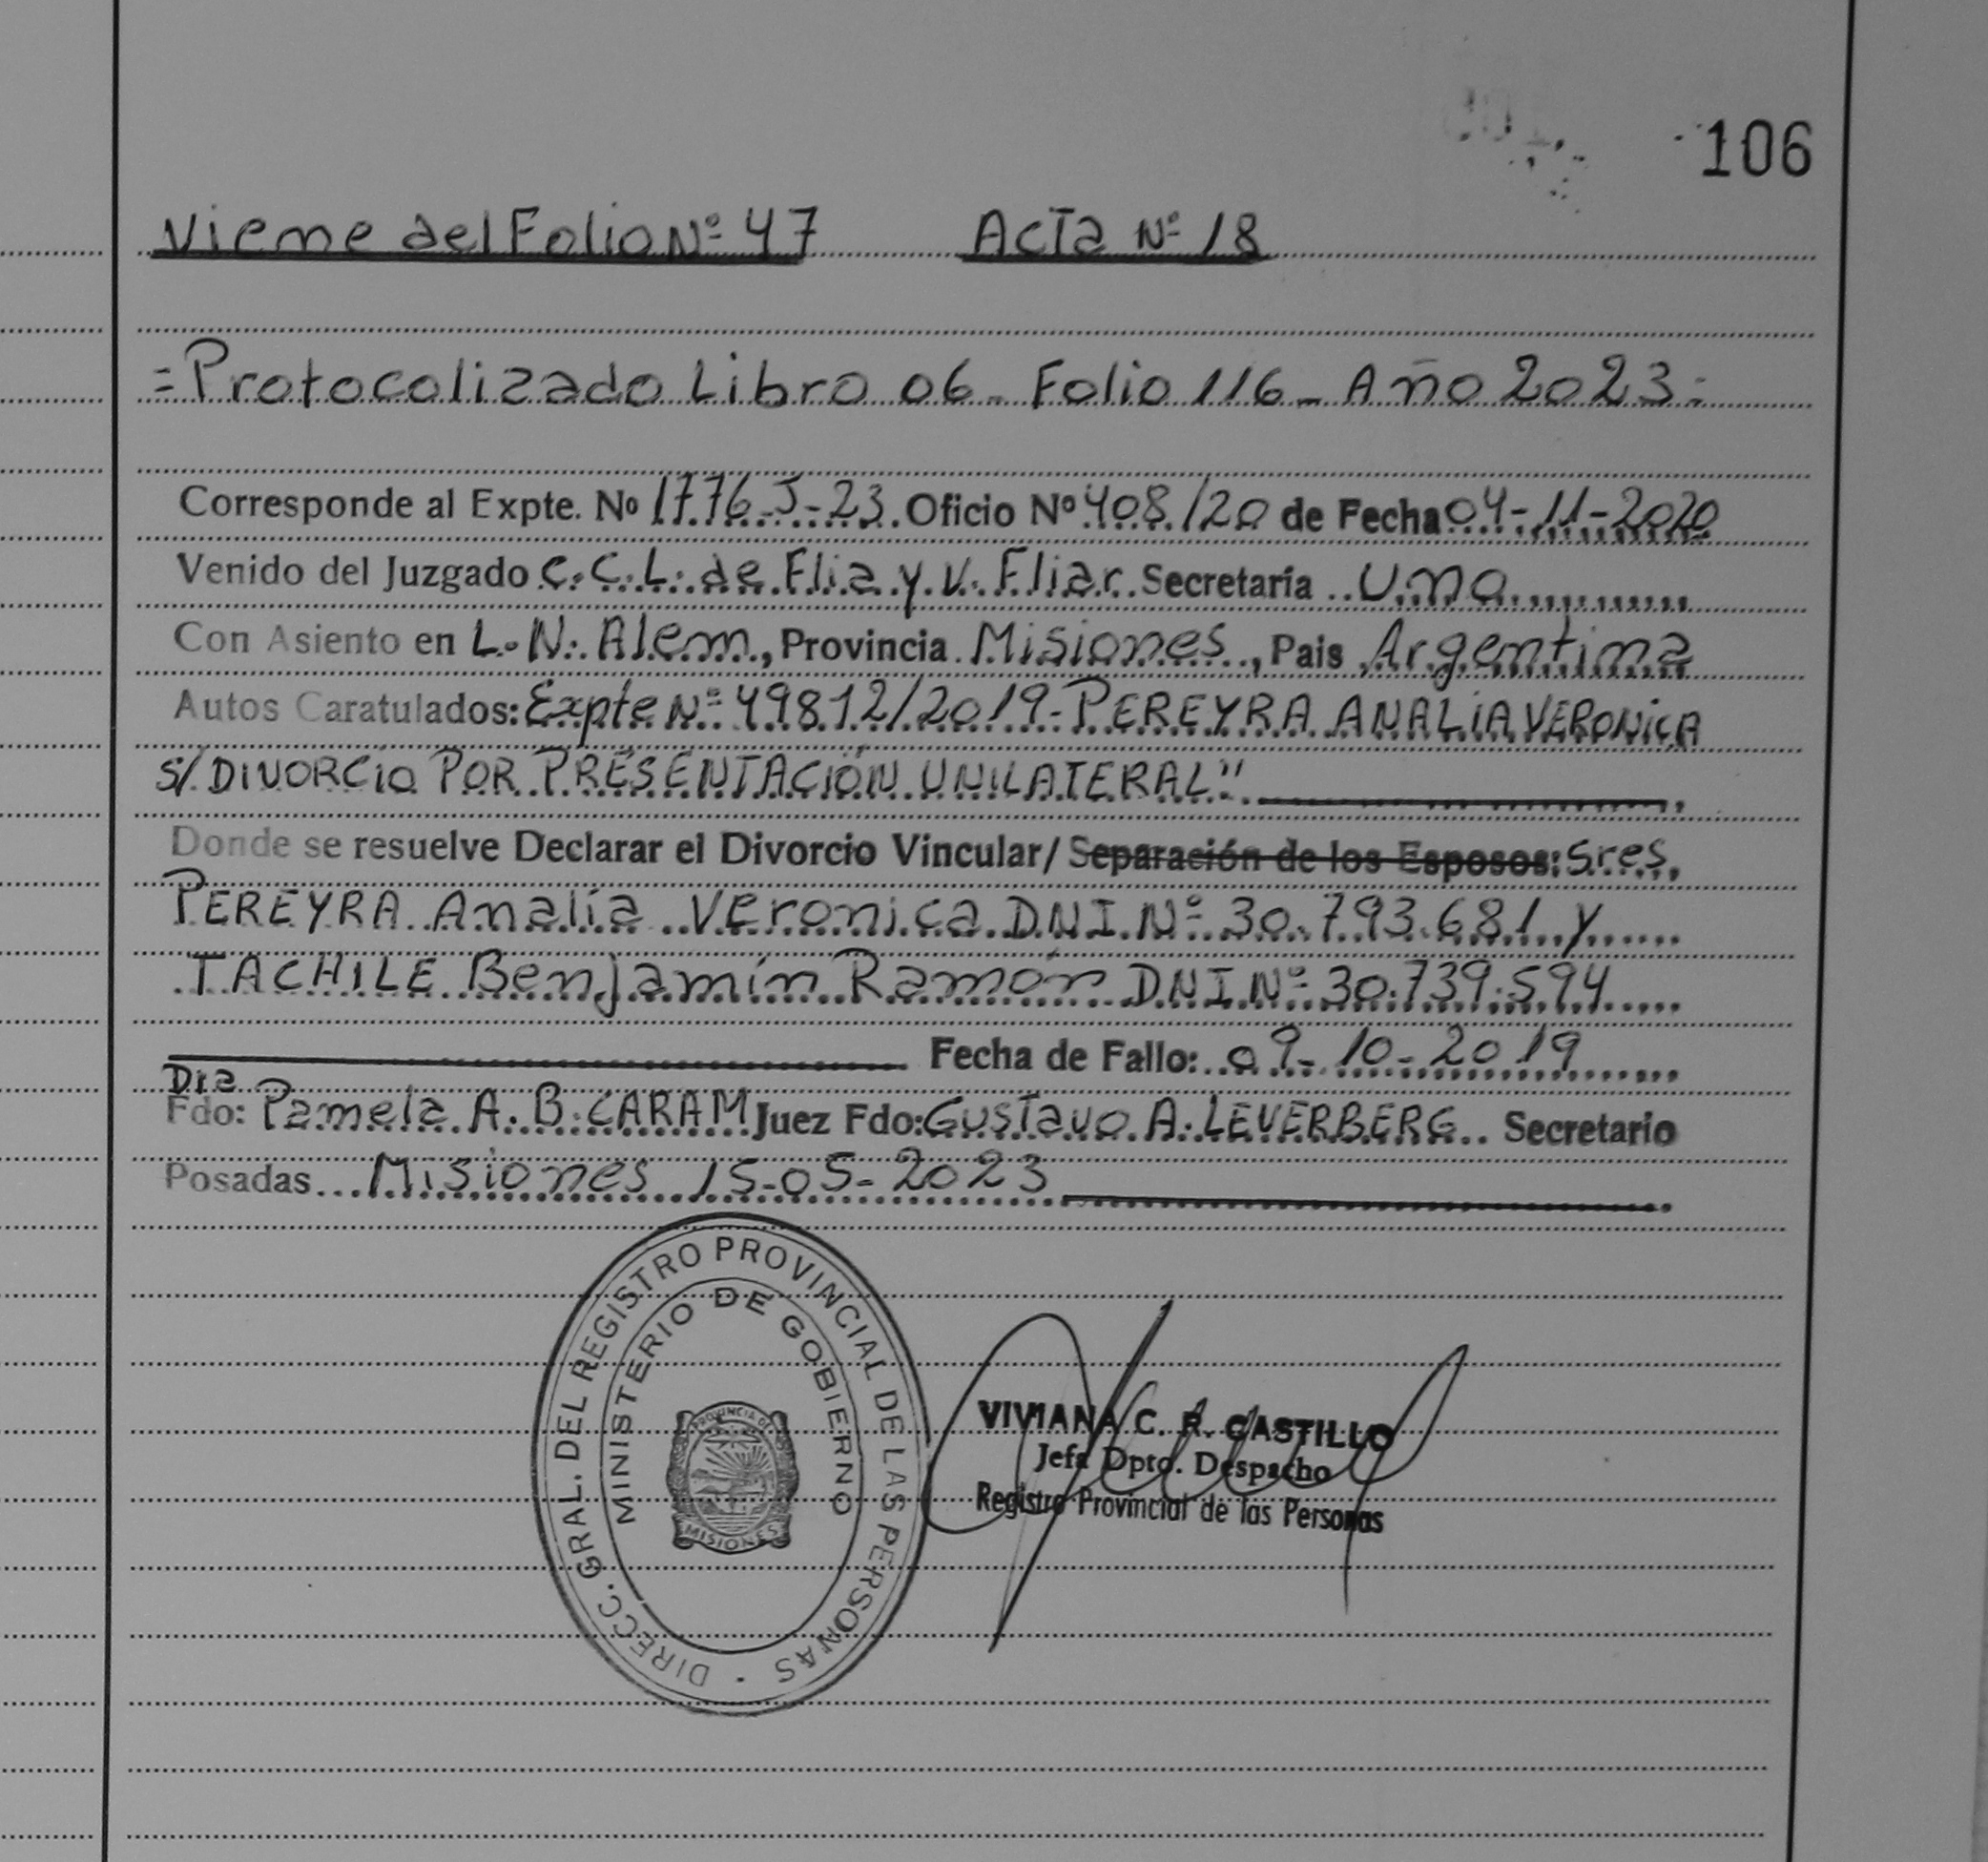 106
Viene del Folio Nº 47 Acta Nº 18
=Protocolizado Libro 06- Folio 116- Año 2023=
Corresponde al Expte. Nº 1776-J-23. Oficio Nº 408/20 de Fecha 04-11-2020
Venido del Juzgado C.C.L. de Flia y V. Fliar. Secretaría Uno
Con Asiento en L.N. Alem, Provincia Misiones, Pais Argentina
Autos Caratulados: Expte Nº 49812/2019-PEREYRA ANALIA VERONICA
S/ DIVORCIO POR PRESENTACIÓN UNILATERAL"
Donde se resuelve Declarar el Divorcio Vincular/ Separación de los Esposos: Sres.
PEREYRA Analía Veronica DNI Nº 30.793.681 y
TACHILE Benjamín Ramón DNI Nº 30.739.594
Fecha de Fallo: 09-10-2019
Dra
Fdo: Pamela A. B. CARAM Juez Fdo: Gustavo A. LEVERBERG Secretario
Posadas Misiones 15-05-2023
DIRECC. GRAL. DEL REGISTRO PROVINCIAL DE LAS PERSONAS
MINISTERIO DE GOBIERNO
PROVINCIA DE
MISIONES
VIVIANA C. R. CASTILLO
Jefa Dpto. Despacho
Registro Provincial de las Personas